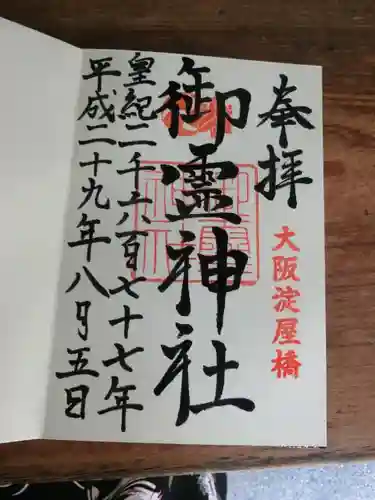 奉拝
大阪淀屋橋
御霊神社
皇紀二千六百七十七年
平成二十九年八月五日